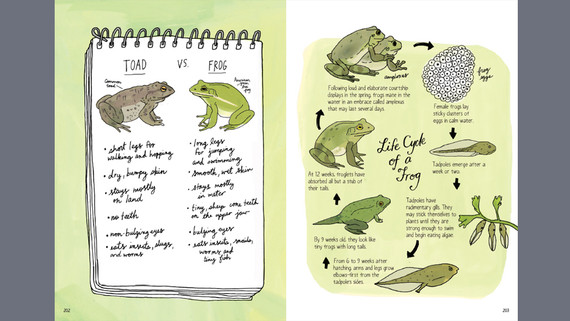 TOAD VS. FROG
Common toad
American green tree frog
• short legs for
walking and hopping
• dry, bumpy skin
• stays mostly
on land
• no teeth
• non-bulging eyes
• eats insects, slugs,
and worms
• long legs
for jumping
and swimming
• smooth, wet skin
• stays mostly
in water
• tiny, sharp cone teeth
on the upper jaw
• bulging eyes
• eats insects, snails,
worms and
tiny fish
202
Life Cycle
of a
Frog
amplexus
Following loud and elaborate courtship
displays in the spring, frogs mate in the
water in an embrace called amplexus
that may last several days.
frog
eggs
Female frogs lay
sticky clusters of
eggs in calm water.
Tadpoles emerge after a
week or two.
Tadpoles have
rudimentary gills. They
may stick themselves to
plants until they are
strong enough to swim
and begin eating algae.
From 6 to 9 weeks after
hatching, arms and legs grow
elbows-first from the
tadpole's sides.
By 9 weeks old, they look like
tiny frogs with long tails.
At 12 weeks, froglets have
absorbed all but a stub of
their tails.
203